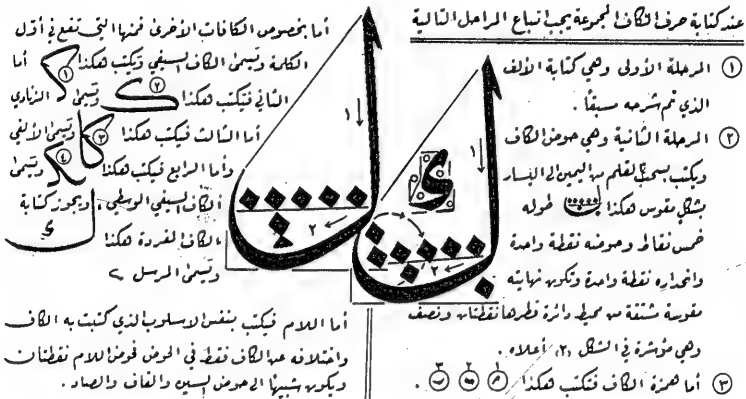 عند كتابة حرف الكاف المجموعة يجب اتباع المراحل التالية
١ المرحلة الأولى وهي كتابة الألف
الذي تم شرحه مسبقاً .
٢ المرحلة الثانية وهي حوض الكاف
ويكتب بسحب القلم من اليمين الى اليسار
بشكل مقوس هكذا طوله
خمس نقاط وحوضه نقطة واحدة
وانحداره نقطة واحدة وتكون نهايته
مقوسة مشتقة من محيط دائرة قطرها نقطتان ونصف
وهي مؤشرة في الشكل (٢) أعلاه .
٣ أما همزة الكاف فتكتب هكذا ١ ٢ ٣ .
أما بخصوص الكافات الأخرى فمنها التي تقع في أول
الكلمة وتسمى الكاف السيفي ويكتب هكذا ١ أما
الثاني فيكتب هكذا ٢ وتسمى الزنادي
أما الثالث فيكتب هكذا ٣ وتسمى الألفي
وأما الرابع فيكتب هكذا ٤ وتسمى
الكاف السيفي الوسطي ، ويجوز كتابة
الكاف المفردة هكذا
وتسمى المرسل
أما اللام فيكتب بنفس الاسلوب الذي كتبت به الكاف
واختلافه عن الكاف فقط في الحوض فحوض اللام نقطتان
ويكون شبيهاً الى حوض السين والقاف والصاد .
١
٢
١
٢